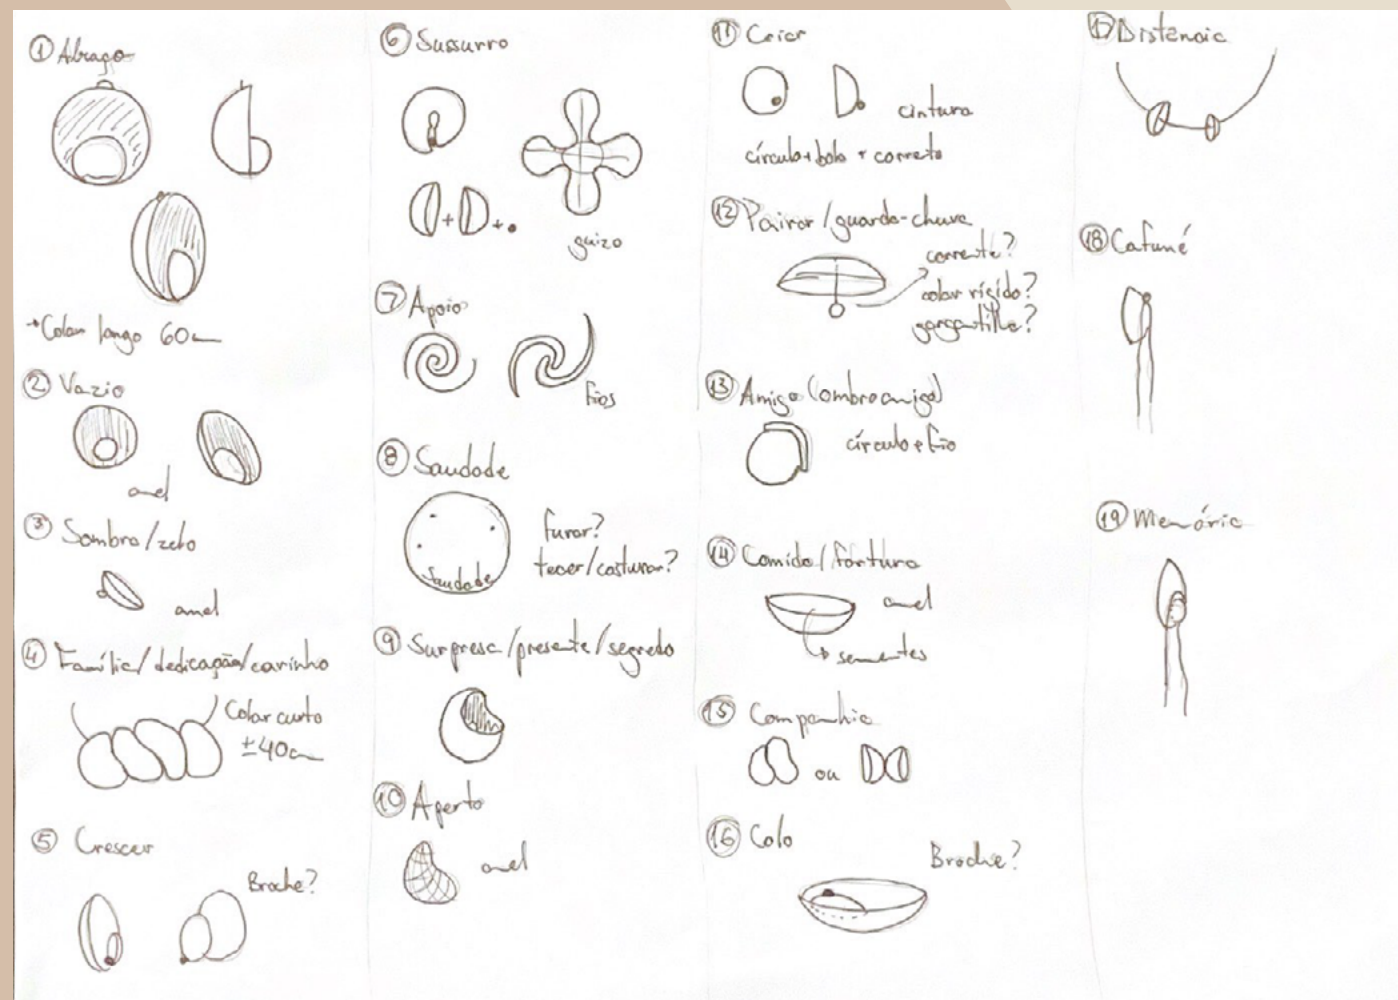 ① Abraço
→ Colar longo 60cm
② Vazio
anel
③ Sombra/zelo
anel
④ Família/dedicação/carinho
Colar curto
±40cm
⑤ Crescer
Broche?
⑥ Sussurro
+
+
guizo
⑦ Apoio
fios
⑧ Saudade
furar?
tecer/costurar?
Saudade
⑨ Surpresa/presente/segredo
⑩ Aperto
anel
⑪ Criar
cintura
círculo + bola + corrente
⑫ Pairar/guarda-chuva
corrente?
colar rígido?
gargantilha?
⑬ Amigo (ombro amigo)
círculo e fio
⑭ Comida/fartura
anel
sementes
⑮ Companhia
ou
⑯ Colo
Broche?
⑰ Distância
⑱ Cafuné
⑲ Memória